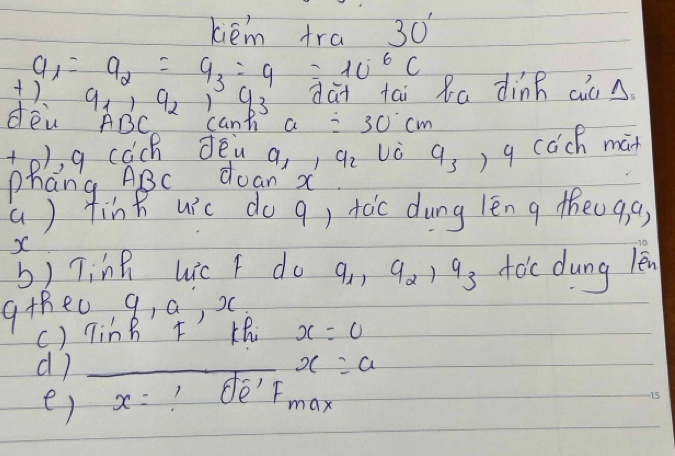 kiểm tra 30'
q₁ = q₂ = q₃ = q = 10⁻⁶ C
+) q₁, q₂, q₃ đặt tại ba đỉnh của Δ
đều ABC cạnh a = 30 cm
+), q cách đều q₁, q₂ và q₃, q cách mặt
phẳng ABC đoạn x
a) tính lực do q, tác dụng lên q theo q, a,
x
b) Tính lực F do q₁, q₂, q₃ tác dụng lên
q theo q, a, x
c) Tính F khi x = 0
d) ________ x = a
e) x = ? để F max
10
15